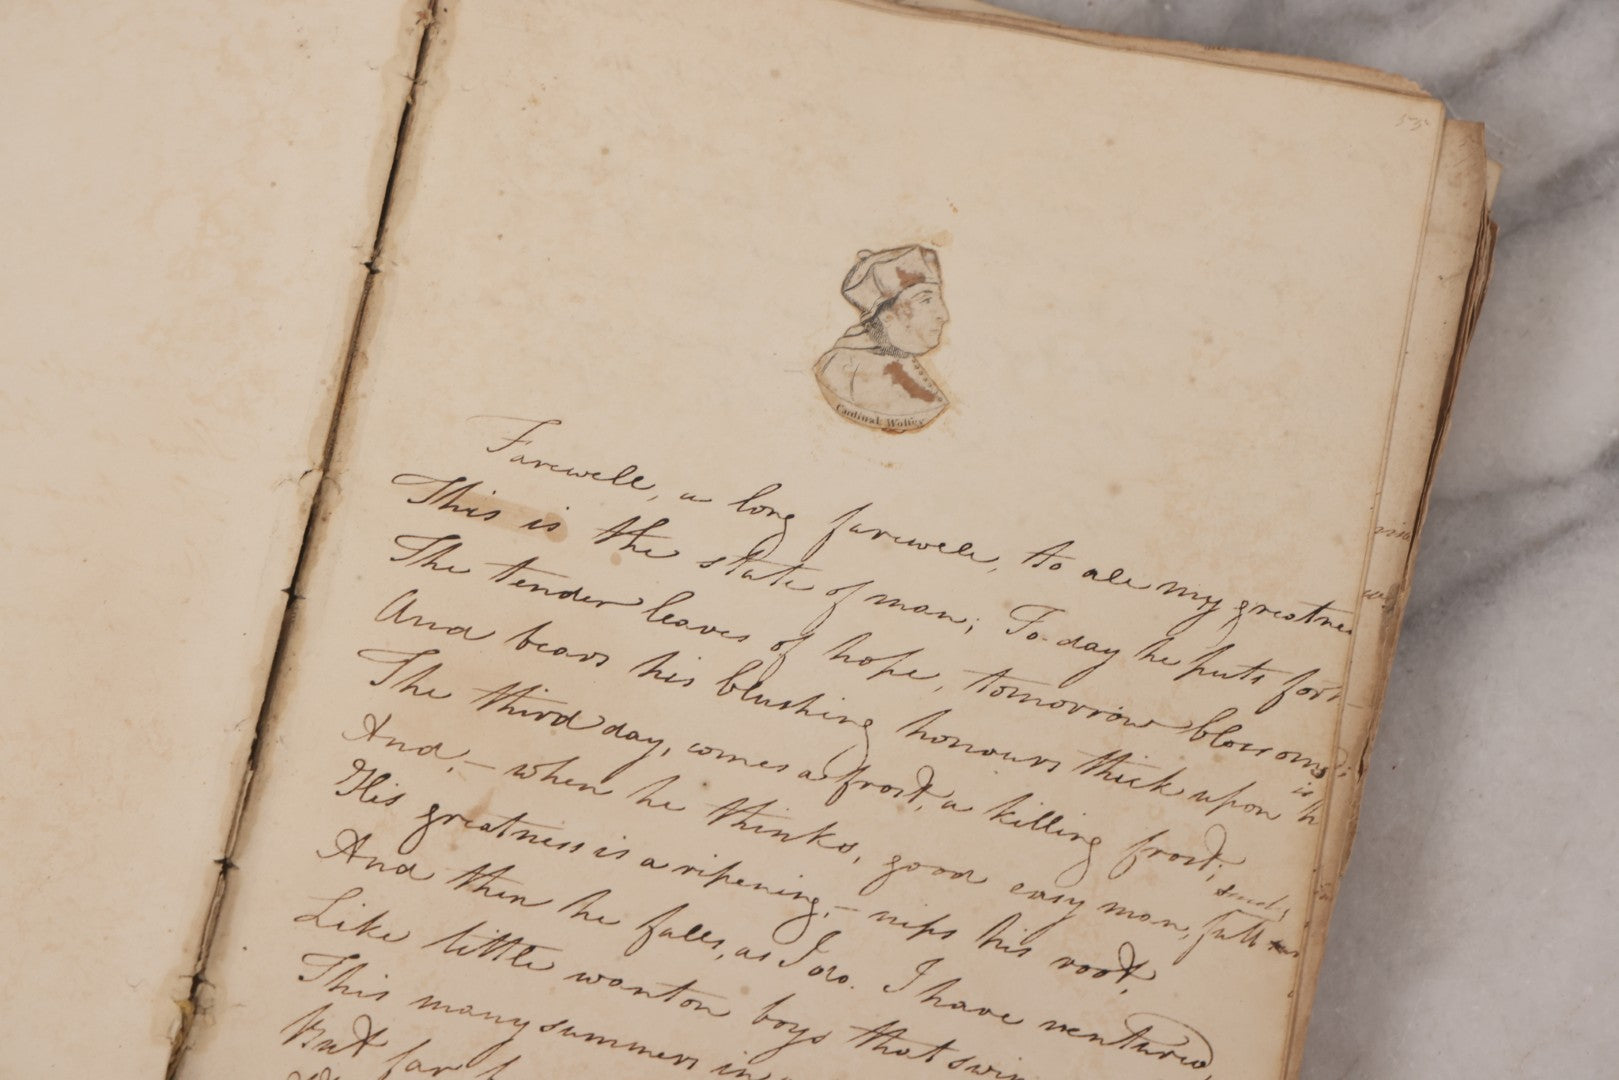 55
Cardinal Wolsey
Farewell, a long farewell, to all my greatnes
This is the state of man; To-day he puts fort
The tender leaves of hope, tomorrow blossoms
And bears his blushing honours thick upon h
The third day, comes a frost, a killing frost;
And,– when he thinks, good easy man, full
His greatness is a ripening,– nips his root,
And then he falls, as I do. I have ventured,
Like little wanton boys that swim
This many summers in
But far